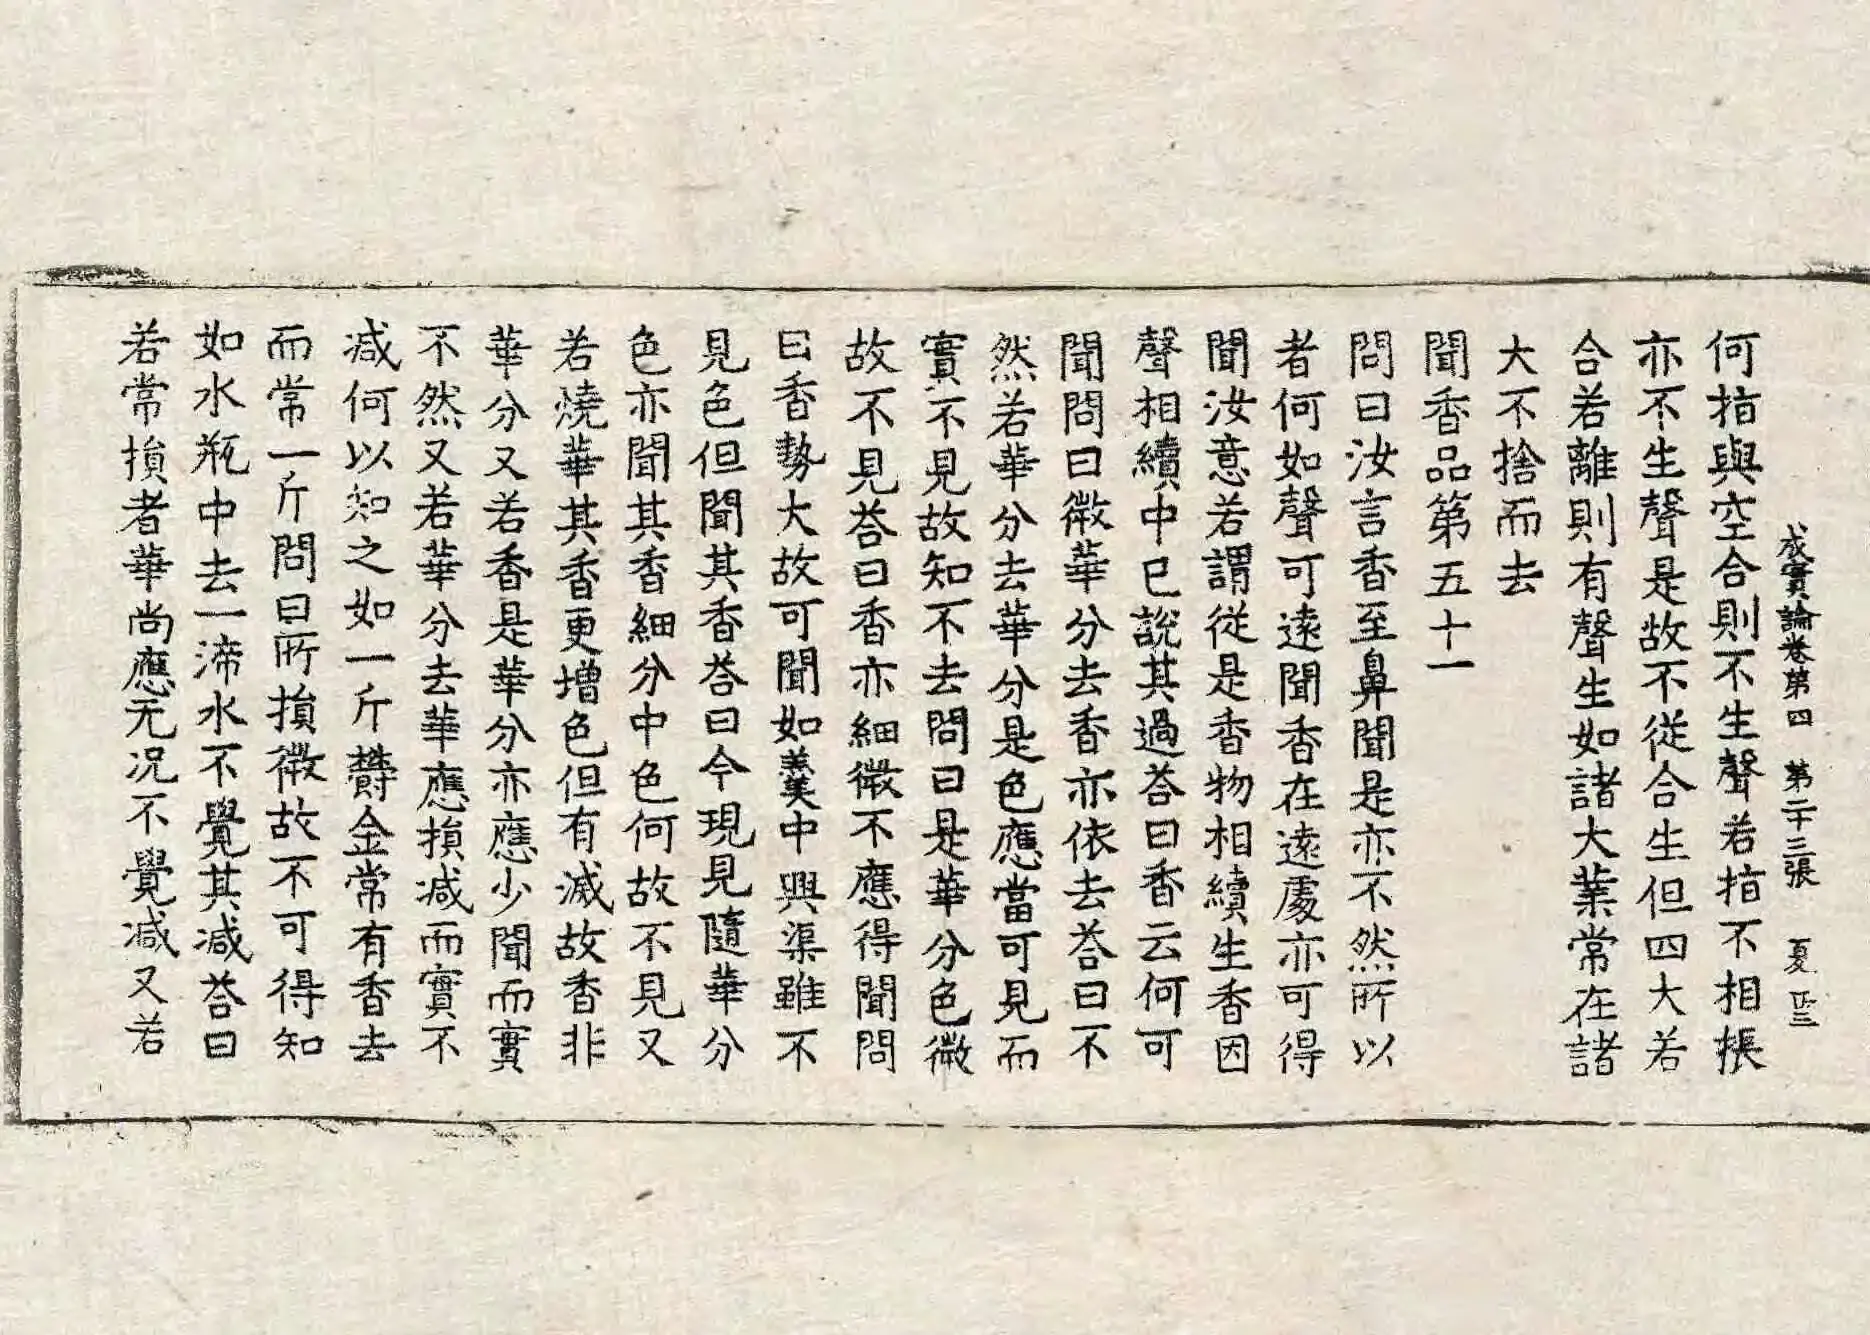 成實論卷第四　第二十三張　夏
何指與空合則不生聲若指不相振
亦不生聲是故不從合生但四大若
合若離則有聲生如諸大業常在諸
大不捨而去
聞香品第五十一
問曰汝言香至鼻聞是亦不然所以
者何如聲可遠聞香在遠處亦可得
聞汝意若謂從是香物相續生香因
聲相續中已說其過荅曰香云何可
聞問曰微華分去香亦依去荅曰不
然若華分去華分是色應當可見而
實不見故知不去問曰是華分色微
故不見荅曰香亦細微不應得聞問
曰香勢大故可聞如羹中興渠雖不
見色但聞其香荅曰今現見隨華分
色亦聞其香細分中色何故不見又
若燒華其香更增色但有減故香非
華分又若香是華分亦應少聞而實
不然又若華分去華應損减而實不
减何以知之如一斤欝金常有香去
而常一斤問曰所損微故不可得知
如水瓶中去一渧水不覺其减荅曰
若常損者華尚應无况不覺减又若